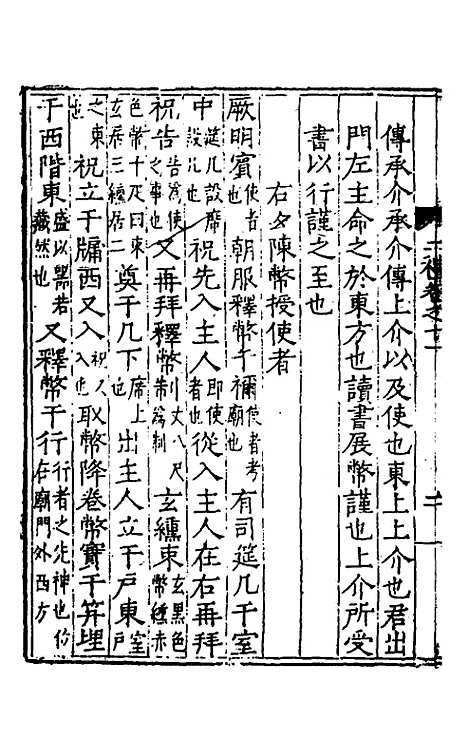 傳承介承介傳上介以及使也東上上介也君出
門左主命之於東方也讀書展幣謹也上介所受
書以行謹之至也
右夕陳幣授使者
厥明賓使者也朝服釋幣于禰廟也使者考有司筵几于室
中筵几設席設几也祝先入主人即使者也從入主人在右再拜
祝告告為使之事也又再拜釋幣制丈八尺幣為制玄纁束玄黑色幣纁赤
色幣十疋曰束玄居三纁居二奠于几下席上也出主人立于戶東室戶
之東也祝立于牖西又入祝人入也取幣降卷幣實于笲埋
于西階東盛以器若藏然也又釋幣于行行者之先神也位在廟門外西方
二禮卷之十二
二